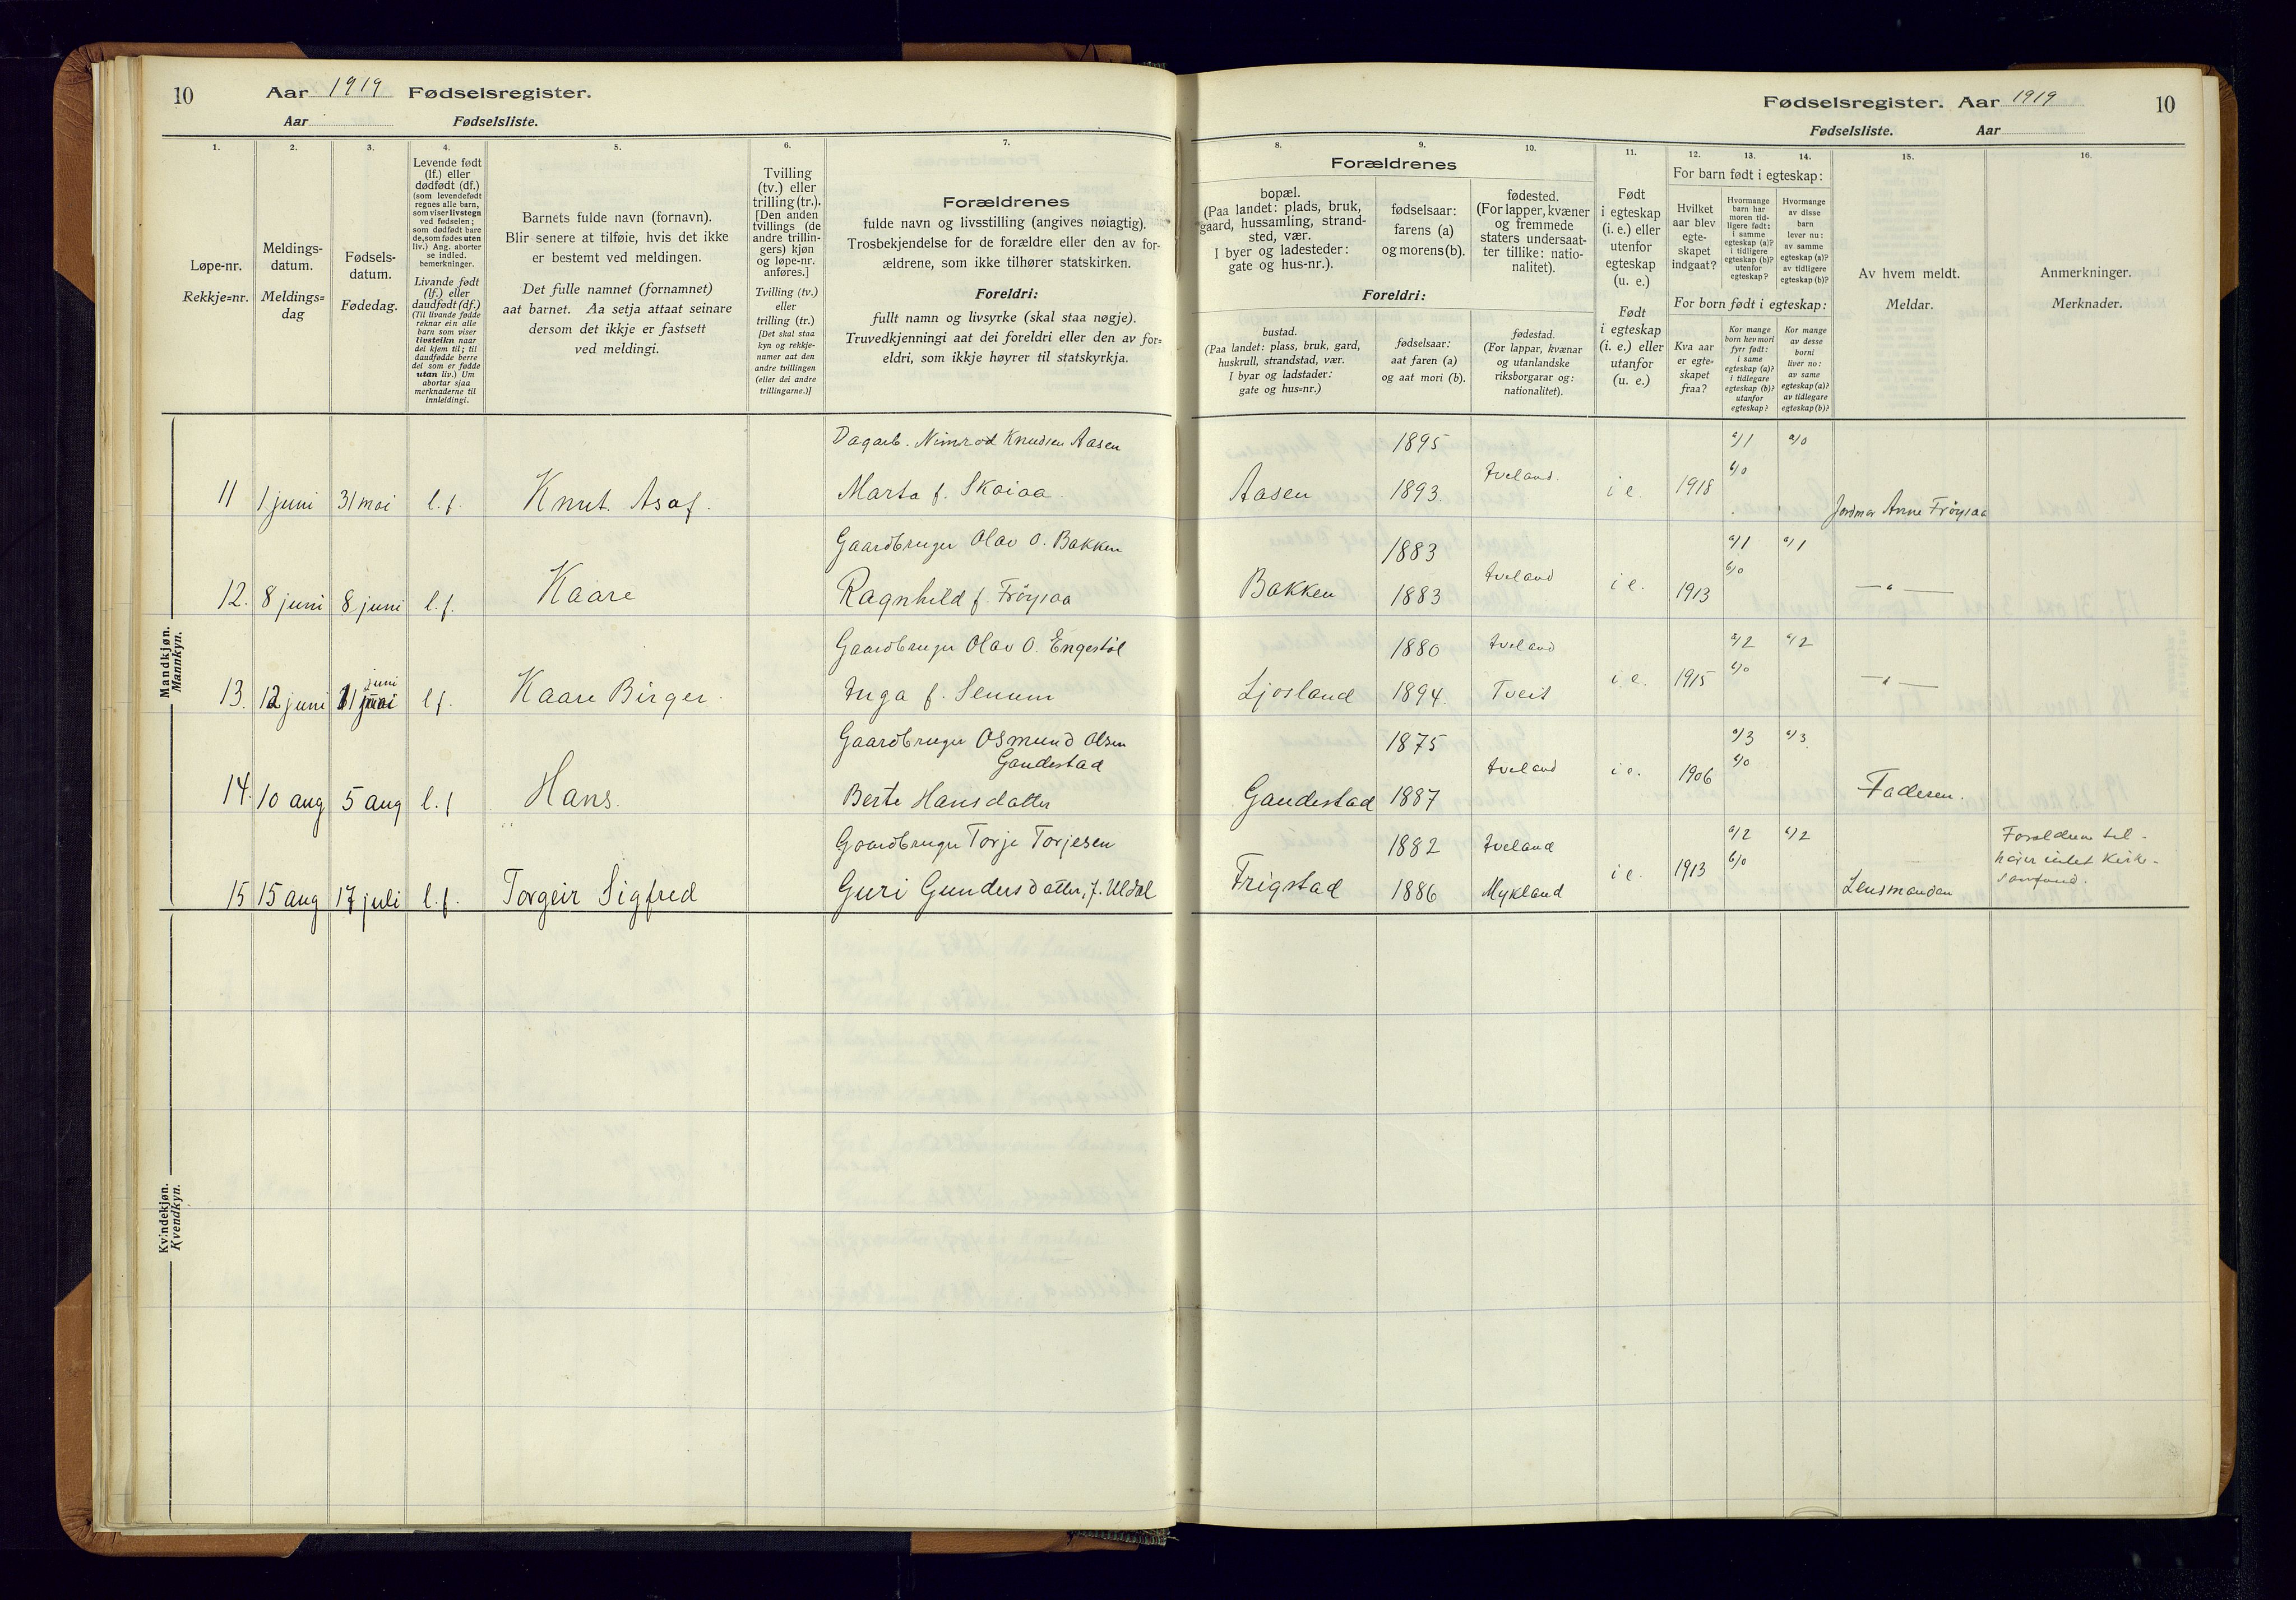 10 Aar 1919 Fødselsregister.
Aar Fødselsliste.
Fødselsregister. Aar 1919 10
Fødselsliste. Aar
1.
Løpe-nr.
Rekkje=nr.
2.
Meldings-
datum.
Meldings=
dag
3.
Fødsels-
datum.
Fødedag.
4.
Levende født
(lf.) eller
dødfødt (df.)
(som levendefødt
regnes alle barn,
som viser livstegn
ved fødselen;
som dødfødt bare
de, som fødes uten
liv.) Ang. aborter
se indled.
bemerkninger.
Livande født
(lf.) eller
daudfødt (df.)
(Til livande fødde
reknar ein alle
barn som viser
livsteikn naar
dei kjem til; til
daudfødde berre
dei som er fødde
utan liv.) Um
abortar sjaa
merknaderne til
innleidingi.
5.
Barnets fulde navn (fornavn).
Blir senere at tilføie, hvis det ikke
er bestemt ved meldingen.
Det fulle namnet (fornamnet)
aat barnet. Aa setja attaat seinare
dersom det ikkje er fastsett
ved meldingi.
6.
Tvilling
(tv.) eller
trilling (tr.).
[Den anden
tvillings (de
andre trillin-
gers) kjøn
og løpe-nr.
anføres.]
Tvilling (tv.)
eller
trilling (tr.)
[Det skal staa
kyn og rekkje-
numer aat den
andre tvillingen
(eller dei andre
trillingarne.)]
7.
Forældrenes
fulde navn og livsstilling (angives nøiagtig).
Trosbekjendelse for de forældre eller den av for-
ældrene, som ikke tilhører statskirken.
Foreldri:
fullt namn og livsyrke (skal staa nøgje).
Truvedkjenningi aat dei foreldri eller den av for=
eldri, som ikkje høyrer til statskyrkja.
Forældrenes
8.
bopæl.
(Paa landet: plads, bruk,
gaard, hussamling, strand-
sted, vær.
I byer og ladesteder:
gate og hus-nr.).
9.
fødselsaar:
farens (a)
og morens (b).
10.
fødested.
(For lapper, kvæner
og fremmede
staters undersaat-
ter tillike: natio-
nalitet).
Foreldri:
bustad.
(Paa landet: plass, bruk, gard,
huskrull, strandstad, vær.
I byar og ladstader:
gate og hus=nr.)
fødselsaar:
aat faren (a)
og aat mori (b).
fødestad.
(For lappar, kvænar
og utanlandske
riksborgarar og:
nationalitet).
11.
Født
i egteskap
(i. e.) eller
utenfor
egteskap
(u. e.)
Født
i egteskap
(i. e.) eller
utanfor
(u. e.)
12. 13. 14.
For barn født i egteskap:
Hvilket
aar blev
egte-
skapet
indgaat?
Hvormange
barn har
moren tid-
ligere født:
i samme
egteskap (a)?
i tidligere
egteskap (b)?
utenfor
egteskap?
Hvormange
av disse
barn
lever nu:
av samme
egteskap (a)?
av tidligere
egteskap (b)?
For born født i egteskap:
Kva aar
er egte=
skapet
fraa?
Kor mange
born hev mori
fyrr født:
i same
egteskap (a)?
i tidlegare
egteskap (b)?
utanfor
egteskap?
Kor mange
av desse
borni
liver no:
av same
egteskap (a)?
av tidlegare
egteskap (b)?
15.
Av hvem meldt.
Meldar.
16.
Anmerkninger.
Merknader.
Mandkjøn.
Mannkyn.
Dagarb. Nimrod Knudsen Aasen 1895 a/1 a/0
11 1 juni 31 mai l.f. Knut Asaf. Marta f. Skaiaa. Aasen 1893. Iveland. i e. 1918 b/0 Jordmor Anne Frøysaa
Gaardbruger Olav O. Bakken 1883 a/1 a/1
12. 8 juni 8 juni l.f. Kaare Ragnhild f. Frøysaa Bakken 1883 Iveland i e. 1913 b/0 —"—
Gaardbruger Olav O. Engestøl 1880 Iveland a/2 a/2
13. 12 juni 11 juni l f. Kaare Birger. Inga f. Senum Ljosland 1894. Tveit i e. 1915 b/0 —"—
Gaardbruger Osmund Olsen
Gaudestad 1875 a/3 a/3
14. 10 aug 5 aug l.f Hans. Berte Hansdatter Gaudestad 1887 Iveland i e. 1906 b/0 Faderen.
Gaardbruger Torje Torjesen 1882 Iveland a/2 a/2
15 15 aug 17 juli l.f. Torgeir Sigfred Guri Gundersdatter, f. Uldal Frigstad 1886 Mykland i e. 1913 b/0 Lensmanden
Forældrene til-
hører intet Kirke-
samfund.
Kvindekjøn.
Kvendkyn.